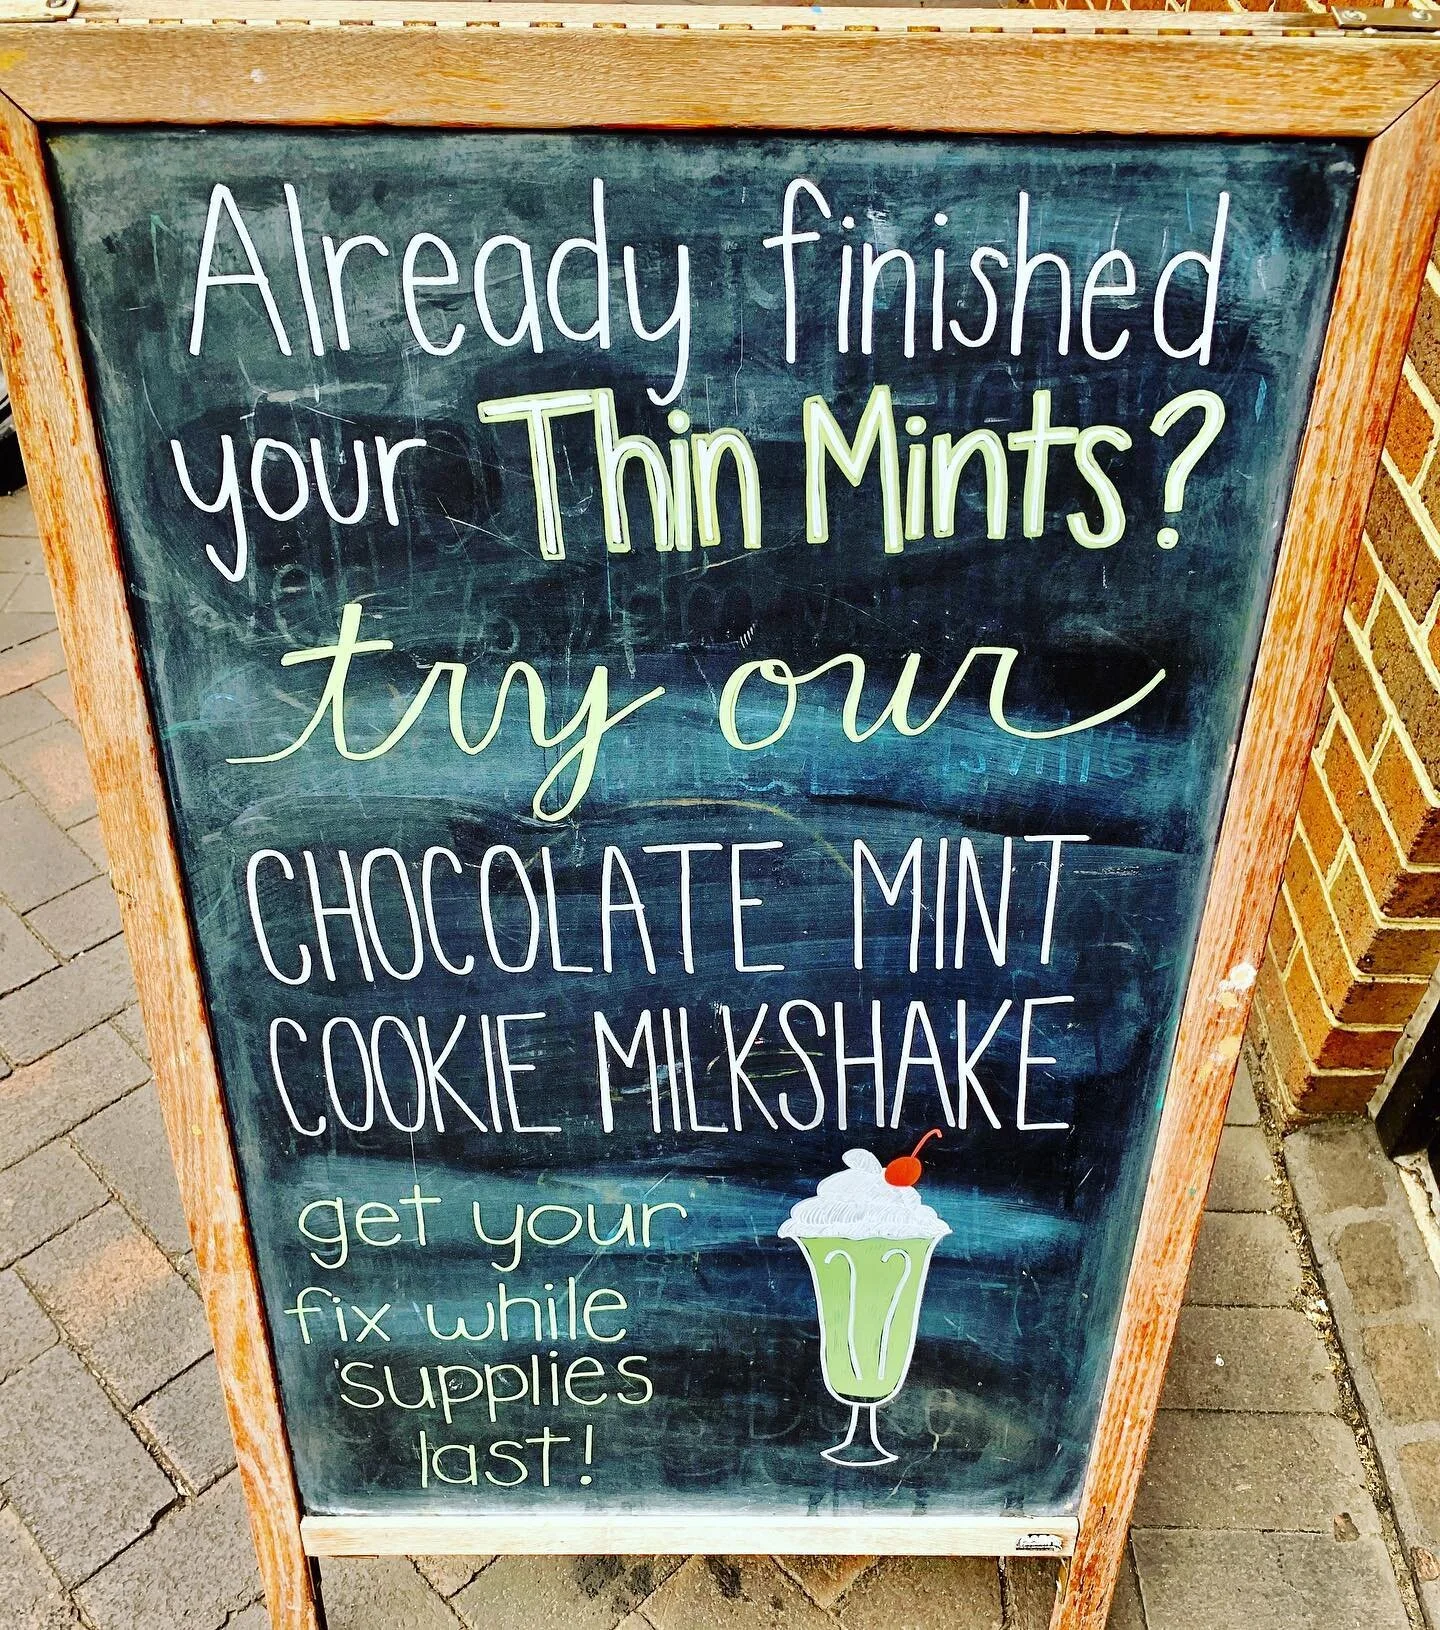 Already finished
your Thin Mints?
try our
CHOCOLATE MINT
COOKIE MILKSHAKE
get your
fix while
supplies
last!